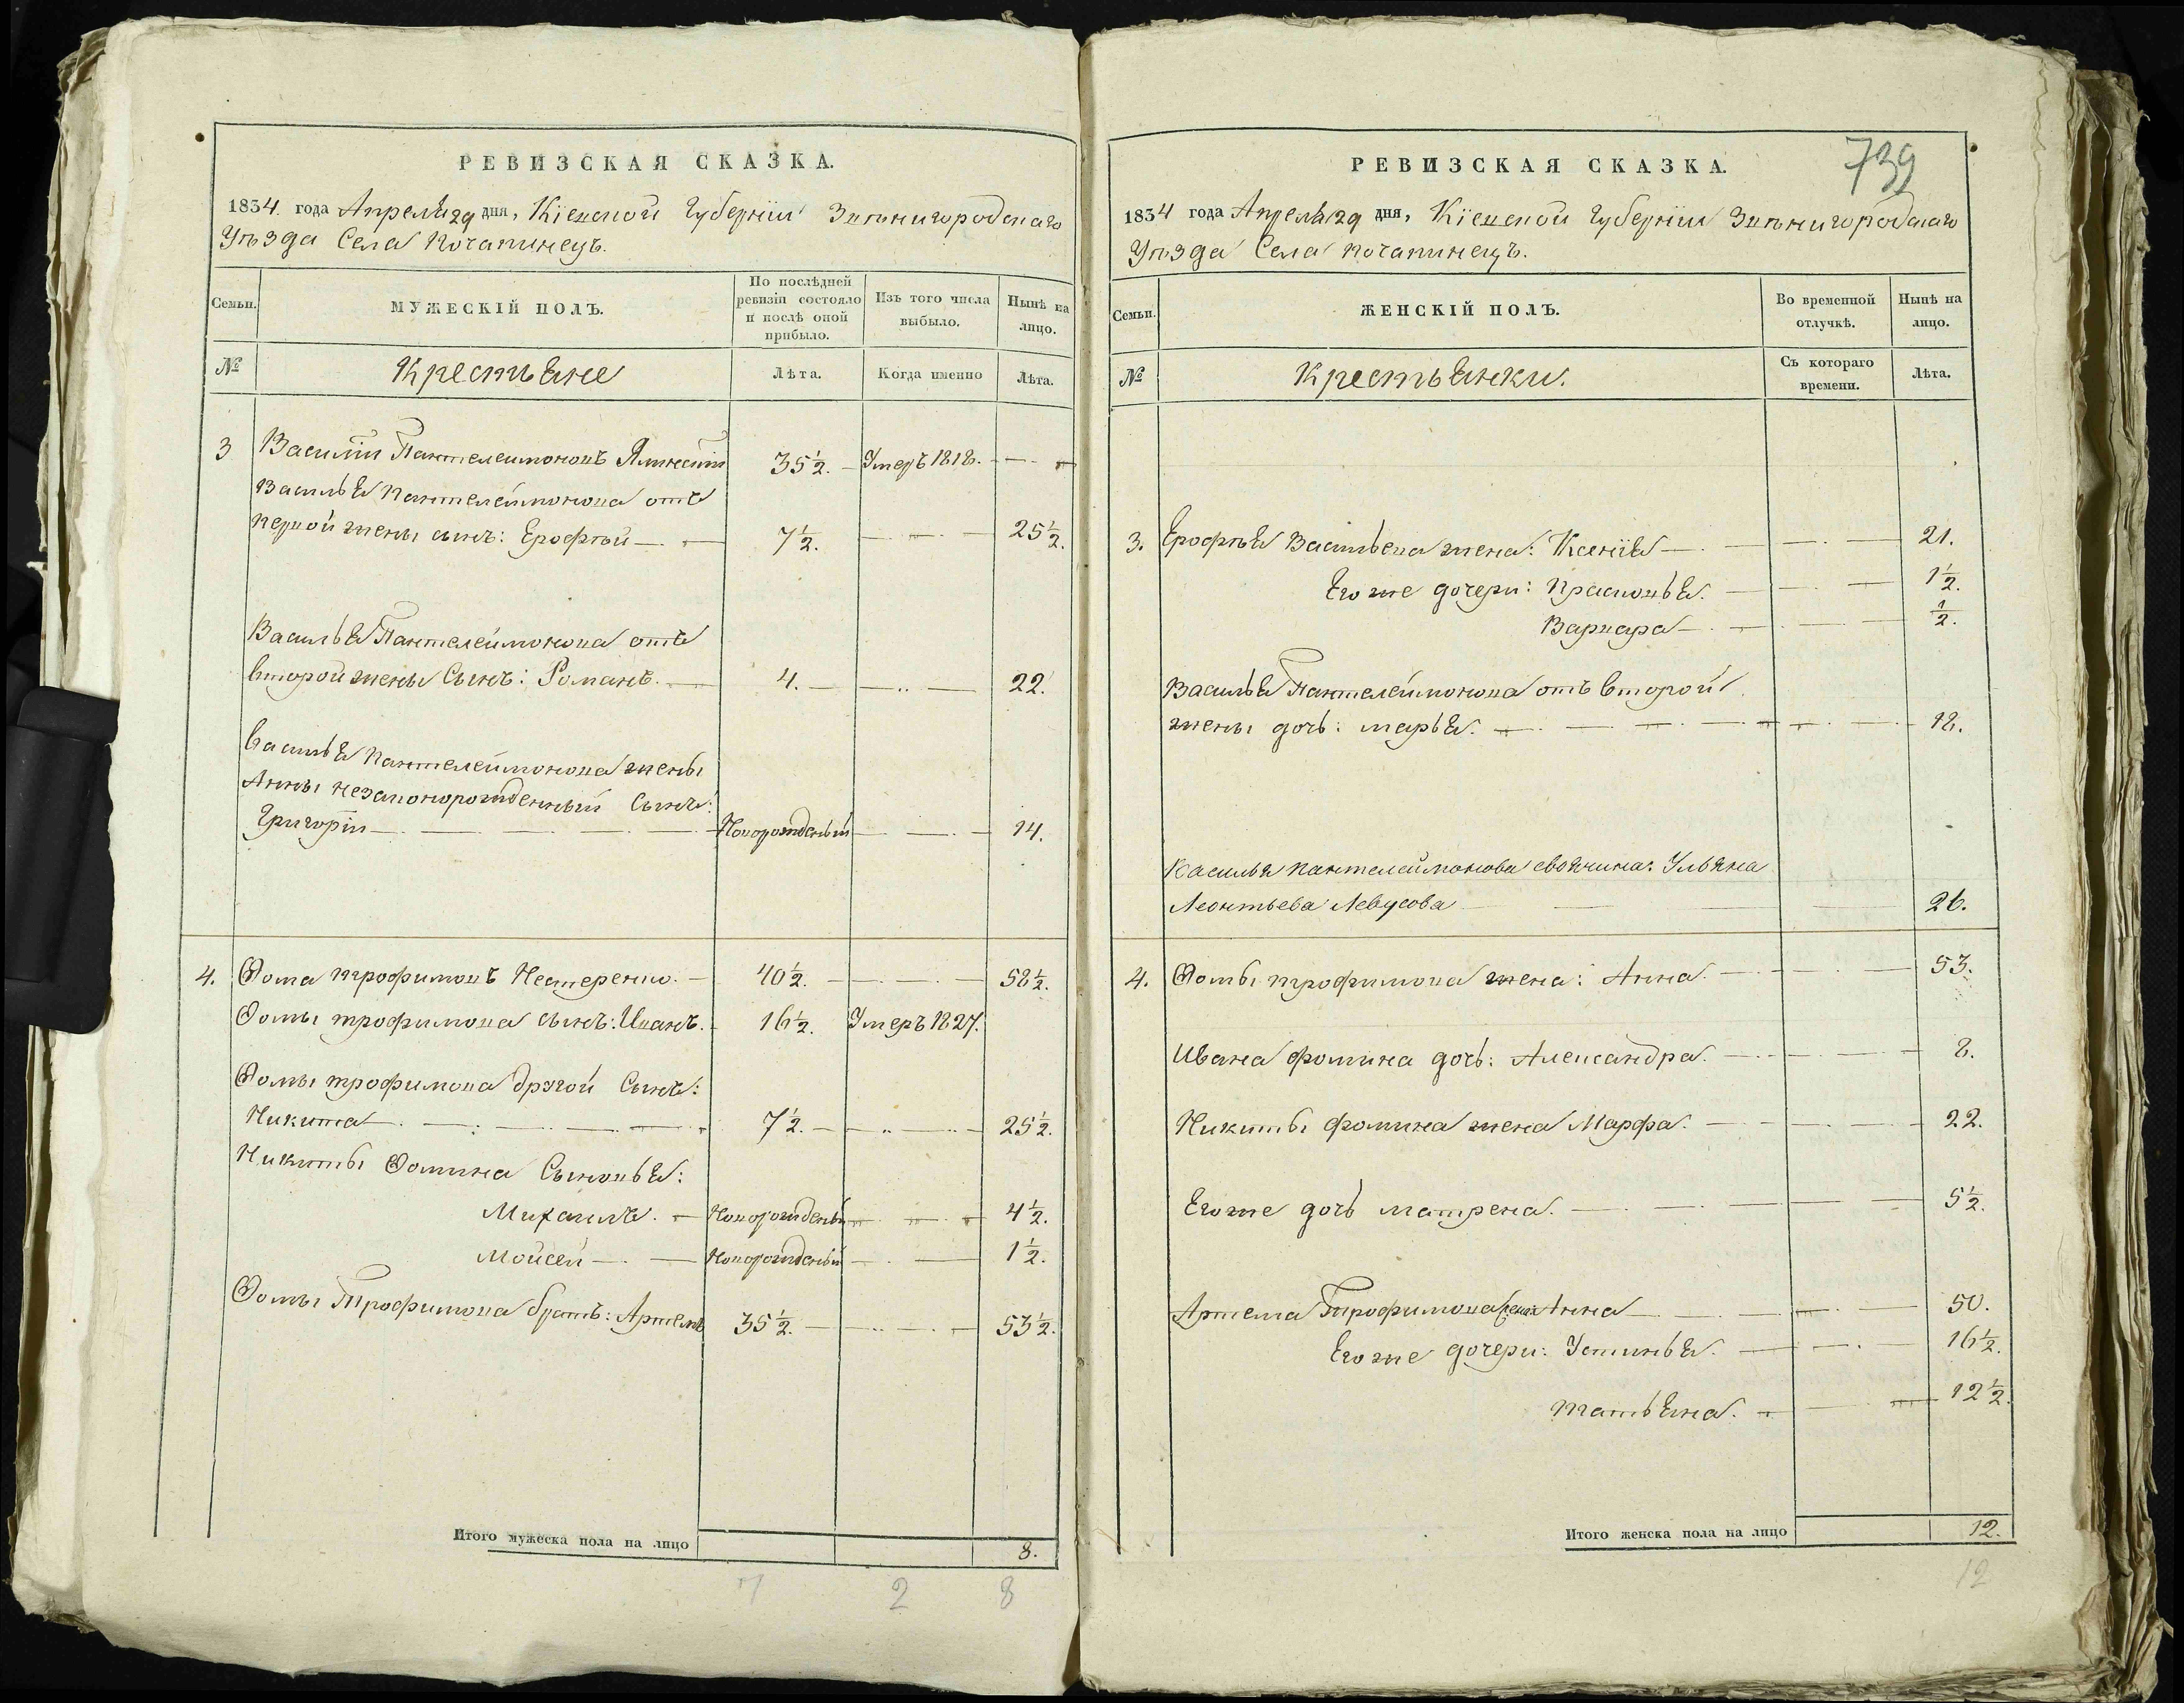 РЕВИЗСКАЯ СКАЗКА.
1834 года Апреля 29 дня, Кіевской Губерніи Звѣнигородскаго
Уѣзда Села Почапинецъ.
Семьи.
МУЖЕСКІЙ ПОЛЪ.
По послѣдней ревизіи состояло и послѣ оной прибыло.
Изъ того числа выбыло.
Нынѣ на лицо.
№
Крестьяне
Лѣта.
Когда именно
Лѣта.
3 Василій Пантелеимоновъ 35 1/2. Умеръ 1818.
Василья Пантелеймонова отъ
первой жены сынъ: Ерофѣй 7 1/2. 25 1/2.
Василья Пантелеймонова отъ
второй жены Сынъ: Романъ. 4. 22.
Василья Пантелеймонова жены
Анны незаконорожденный Сынъ:
Григорій Новорожденый 14.
4. Ѳома трофимовъ Нестеренко. 40 1/2. 58 1/2.
Ѳомы трофимова сынъ: Иванъ. 16 1/2. Умеръ 1827.
Ѳомы трофимова другой Сынъ:
Никита 7 1/2. 25 1/2.
Никиты Ѳомина Сыновья:
Михаилъ. Новорожденый 4 1/2.
Мойсей Новорожденый 1 1/2.
Ѳомы Трофимова братъ: Артемъ 35 1/2. 53 1/2.
Итого мужеска пола на лицо 8.
7 2 8
739
РЕВИЗСКАЯ СКАЗКА.
1834 года Апреля 29 дня, Кіевской Губерніи Звѣнигородскаго
Уѣзда Села Почапинецъ.
Семьи.
ЖЕНСКІЙ ПОЛЪ.
Во временной отлучкѣ.
Нынѣ на лицо.
№
Крестьянки.
Съ котораго времени.
Лѣта.
3. Ерофѣя Васильева жена: Ксенія 21.
Его же дочери: Прасковья. 1 1/2.
Варвара 1/2.
Василья Пантелеймонова отъ второй
жены дочь: марья. 18.
Василья Пантелеймонова своячина: Ульяна
Леонтьева Левусова 26.
4. Ѳомы трофимова жена: Анна. 53.
Ивана фомина дочь: Александра. 8.
Никиты фомина жена Марфа. 22.
Его же дочь матрена. 5 1/2.
Артема Трофимова жена Анна 50.
Его же дочери: Устинья. 16 1/2.
татьяна. 12 1/2.
Итого женска пола на лицо 12.
12